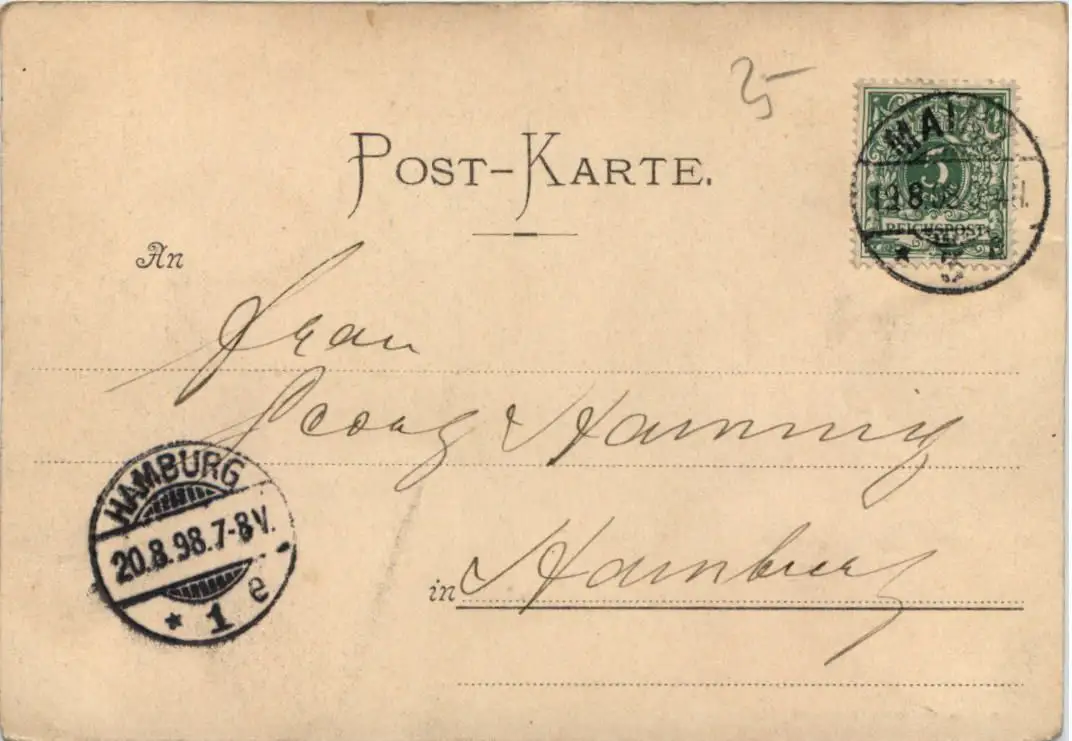 25
POST-KARTE.
MAI
19.8.98.
5
REICHSPOST
An
Frau
Georg Hanning
HAMBURG
20.8.98.7-8V.
* 1 e
in Hamburg